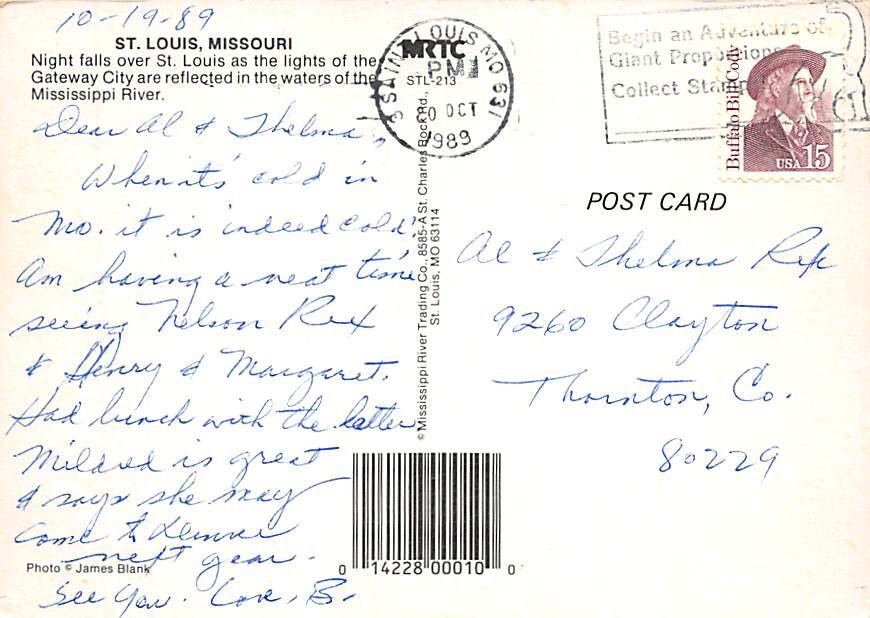 10-19-89
ST. LOUIS, MISSOURI
Night falls over St. Louis as the lights of the
Gateway City are reflected in the waters of the
Mississippi River.
Dear Al & Thelma,
When it's cold in
Mo. it is indeed cold!
Am having a neat time
seeing Nelson Rex
& Henry & Margaret.
Had lunch with the latter
Mildred is great
& says she may
come to Denver
next year.
See you. Love, B.
Photo © James Blank
MRTC
STL-213
© Mississippi River Trading Co., 8585-A St. Charles Rock Rd.,
St. Louis, MO 63114
0 14228 00010 0
SAINT LOUIS MO 631
PM
OCT
1989
Begin an Adventure of
Giant Proportions
Collect Stamps
Buffalo Bill Cody
USA 15
POST CARD
Al & Thelma Rex
9260 Clayton
Thornton, Co.
80229